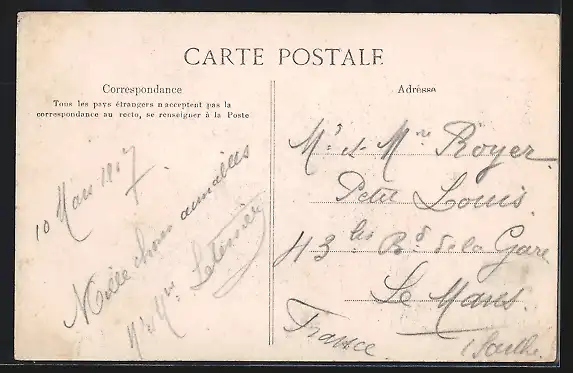 CARTE POSTALE
Correspondance
Tous les pays étrangers n'acceptent pas la
correspondance au recto, se renseigner à la Poste
Adresse
10 Mars 1907
Mille choses aimables
Mr & Mme Letessier
Mr et Mme Royer
Petit Louis
43 bis Bd de la Gare
Le Mans.
(Sarthe)
France